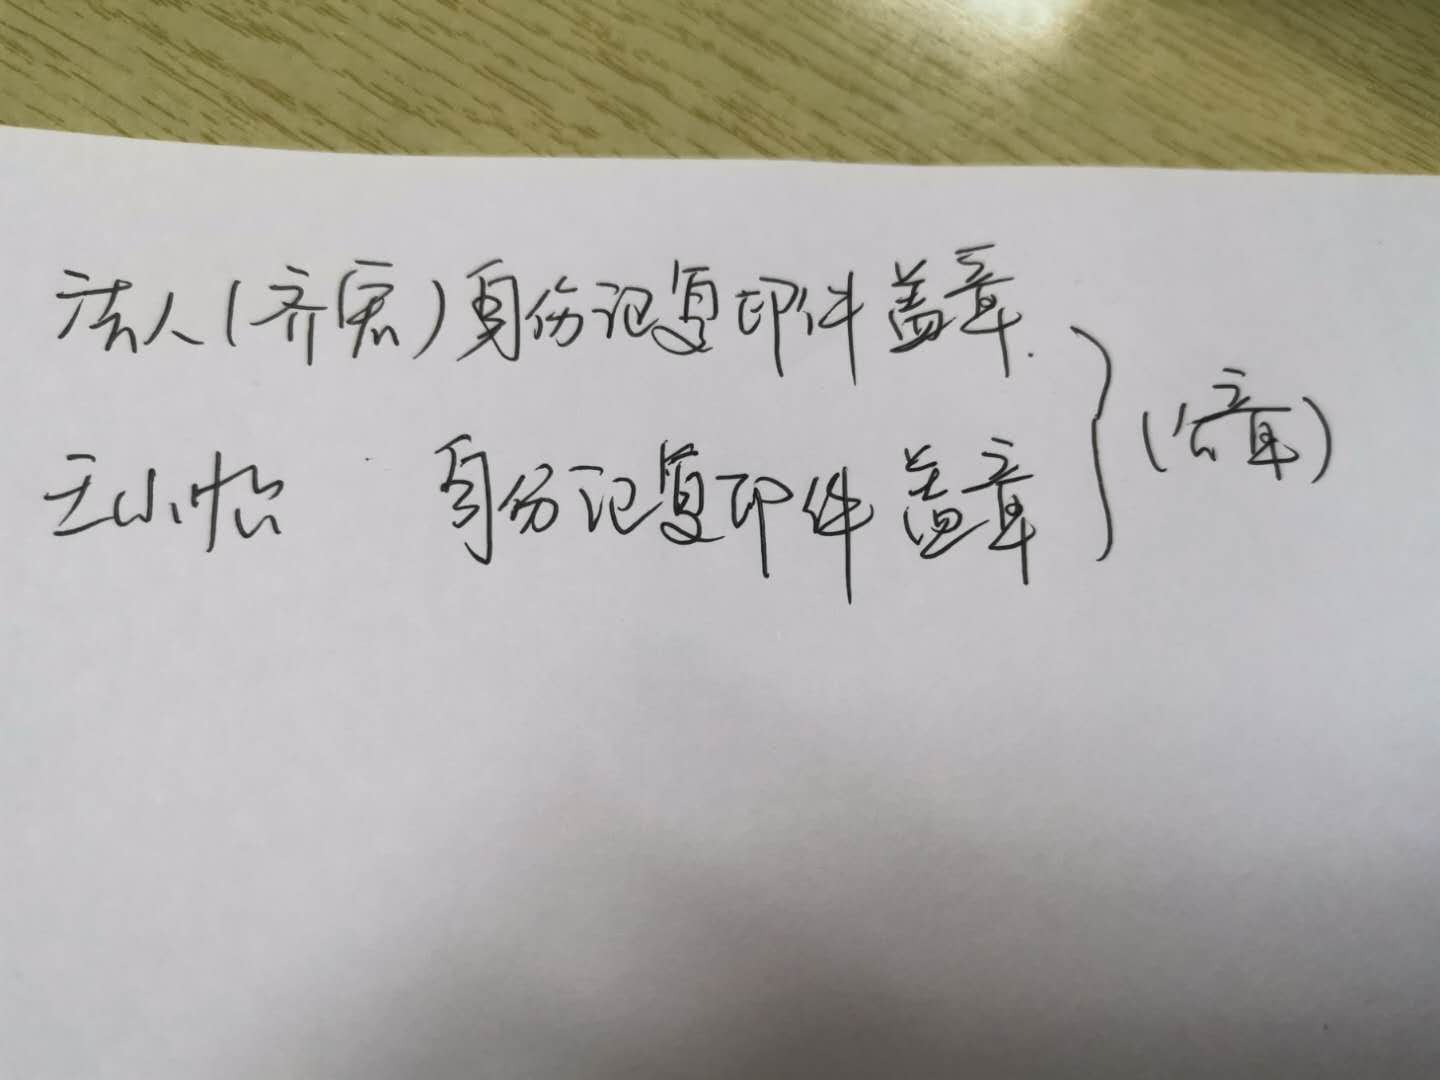 法人(齐宏)身份证复印件盖章.
王小怡 身份证复印件盖章
(公章)